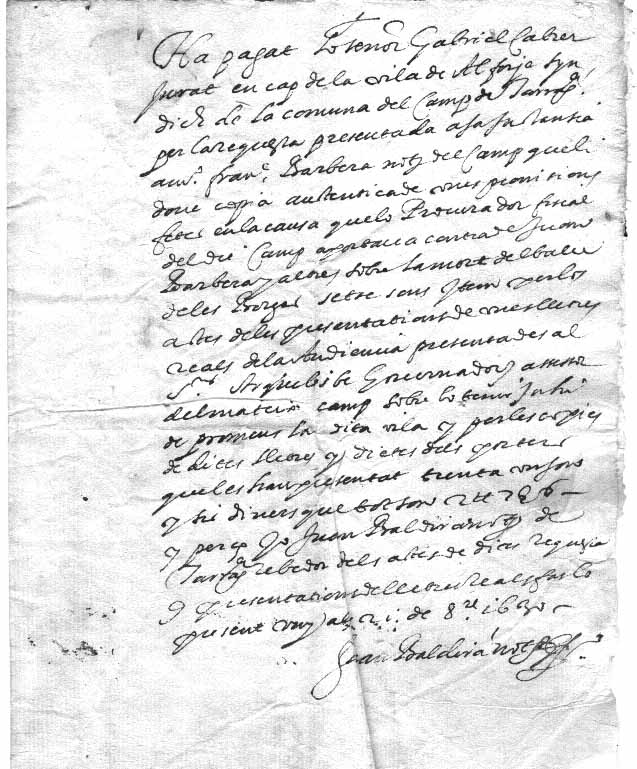 Ha pagat lo senor Gabriel Cabrer
Jurat en cap de la vila de Alforja syn
dich de la comuna del Camp de Tarrag.ª
per la requesta presentada a sa instantia
Fran.ᶜ Barbera not del Camp que li
done copia autentica de unes provisions
fetes en la causa que lo Procurador fiscal
del dit Camp aportava contra de Juan
Barbera y altres sobre la mort del balle
de les Borges setse sous Item per los
actes deles presentations de unes lletres
reals de la Audiencia presentades al
S.ʳ Arquebisbe Governador y assesor
del mateix camp sobre lo
de la dita vila y per les copies
de dites lletres y dietes dels porters
que les han presentat trenta un sou
y sis diners que tot son 2 ll 7 s 6
y per ço Jo Juan Baldira not de
Tarrag.ª rebedor dels actes de dites requesta
y presentations de lletres reals fas lo
present vuy als 21 de 8.ʳᵉ 1630
Juan Baldira not